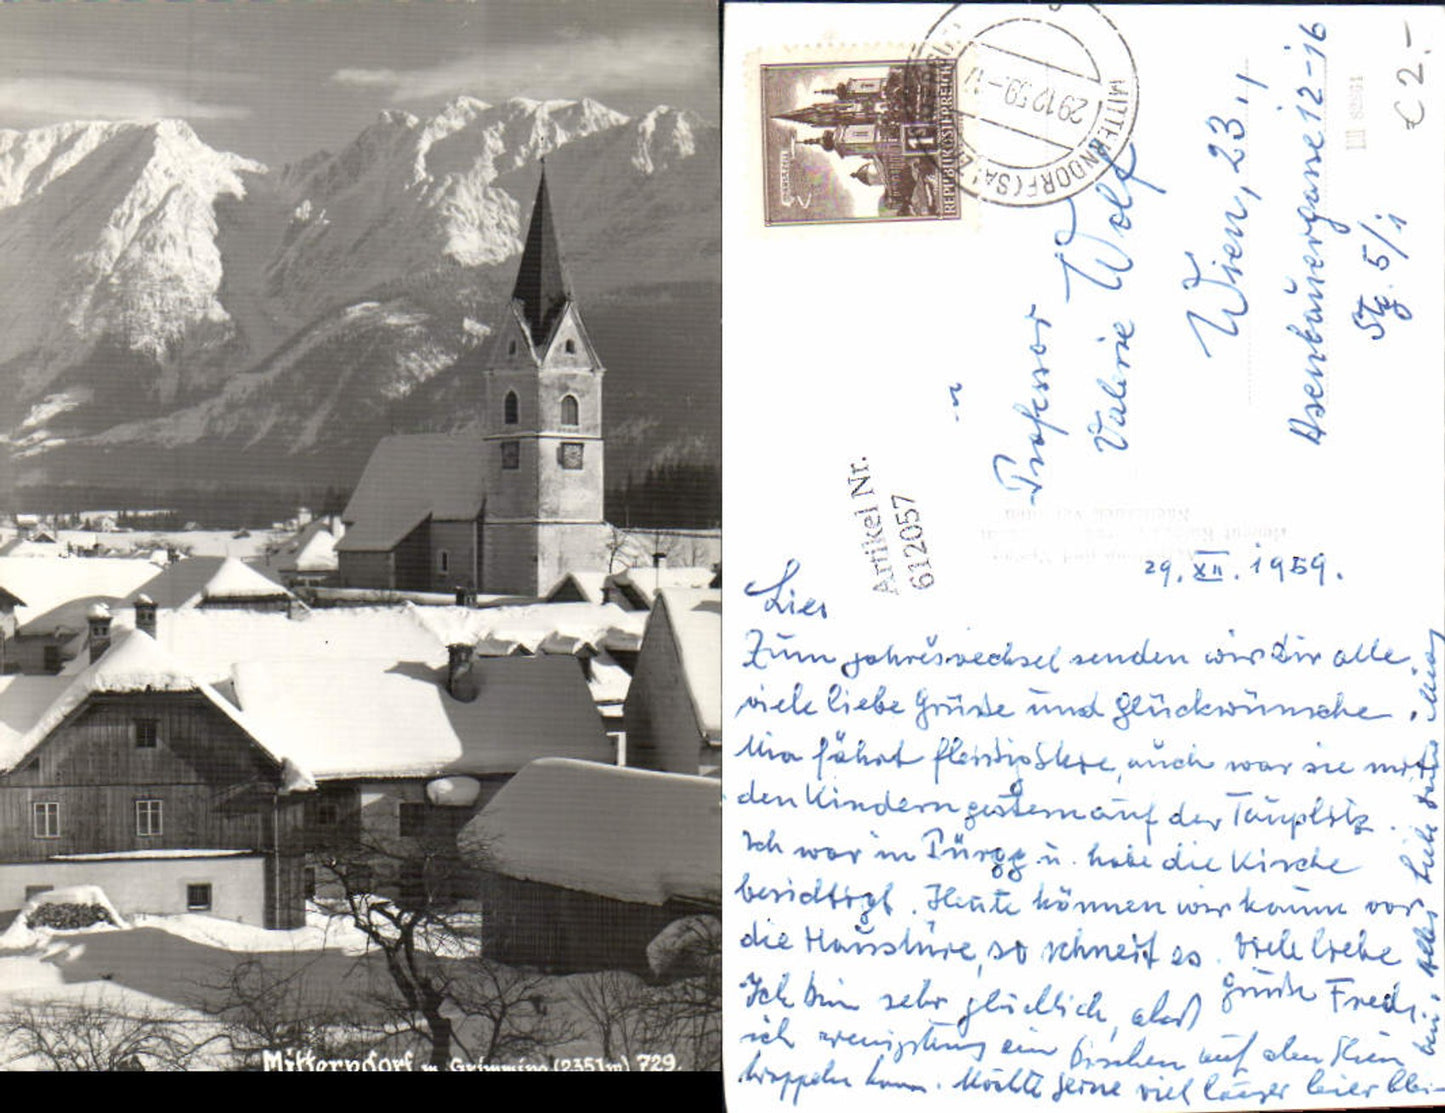 Mitterndorf m. Grimming (2351m) 729.
MARIAZELL
1S
REPUBLIK ÖSTERREICH
29.12.59.-17
MITTERNDORF (SALZK
Professor
Valerie Wolf
Wien, 23.,
Asenbauergasse 12-16
Stg. 5/1
€ 2.-
Artikel Nr.
612057
29. XII. 1959.
Zum Jahreswechsel senden wir Dir alle
viele liebe Grüsse und Glückwünsche.
Mia fährt fleissig Skie, auch war sie mit
den Kindern gestern auf der Tauplitz.
Ich war in Pürgg u. habe die Kirche
besichtigt. Heute können wir kaum vor
die Haustüre, so schneit es. Viele liebe
Grüsse Fredi
Ich bin sehr glücklich, dass
ich wenigstens ein bischen auf den Skien
krappeln kann. Möchte gerne viel länger hier blei-
ben. Alles Liebe Deine Mia